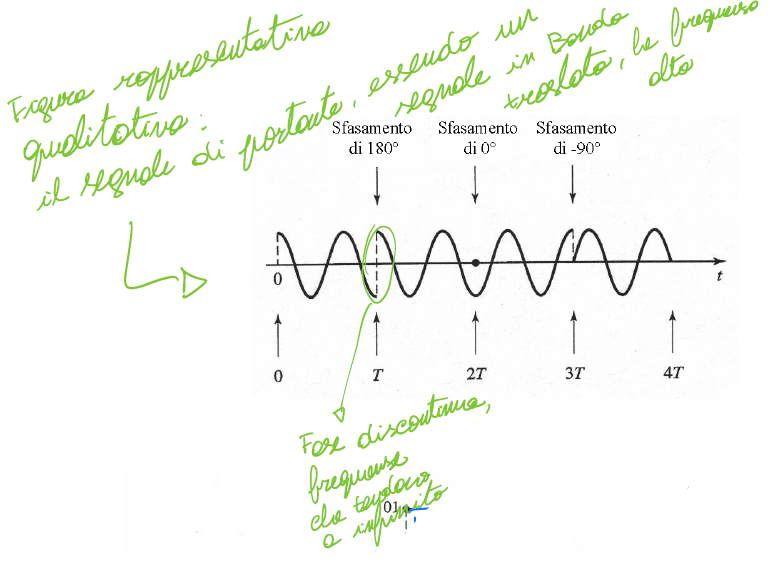 Figura rappresentativa
qualitativa:
il segnale di portante, essendo un
segnale in Banda
traslata, ha frequenza
alta
Sfasamento Sfasamento Sfasamento
di 180° di 0° di -90°
0 t
0 T 2T 3T 4T
Fase discontinua,
frequenze
che tendono
a infinito
01